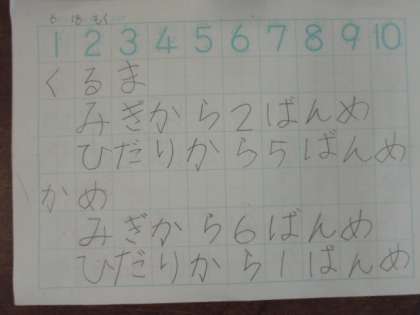 1 2 3 4 5 6 7 8 9 10
くるま
みぎから2ばんめ
ひだりから5ばんめ
かめ
みぎから6ばんめ
ひだりから1ばんめ